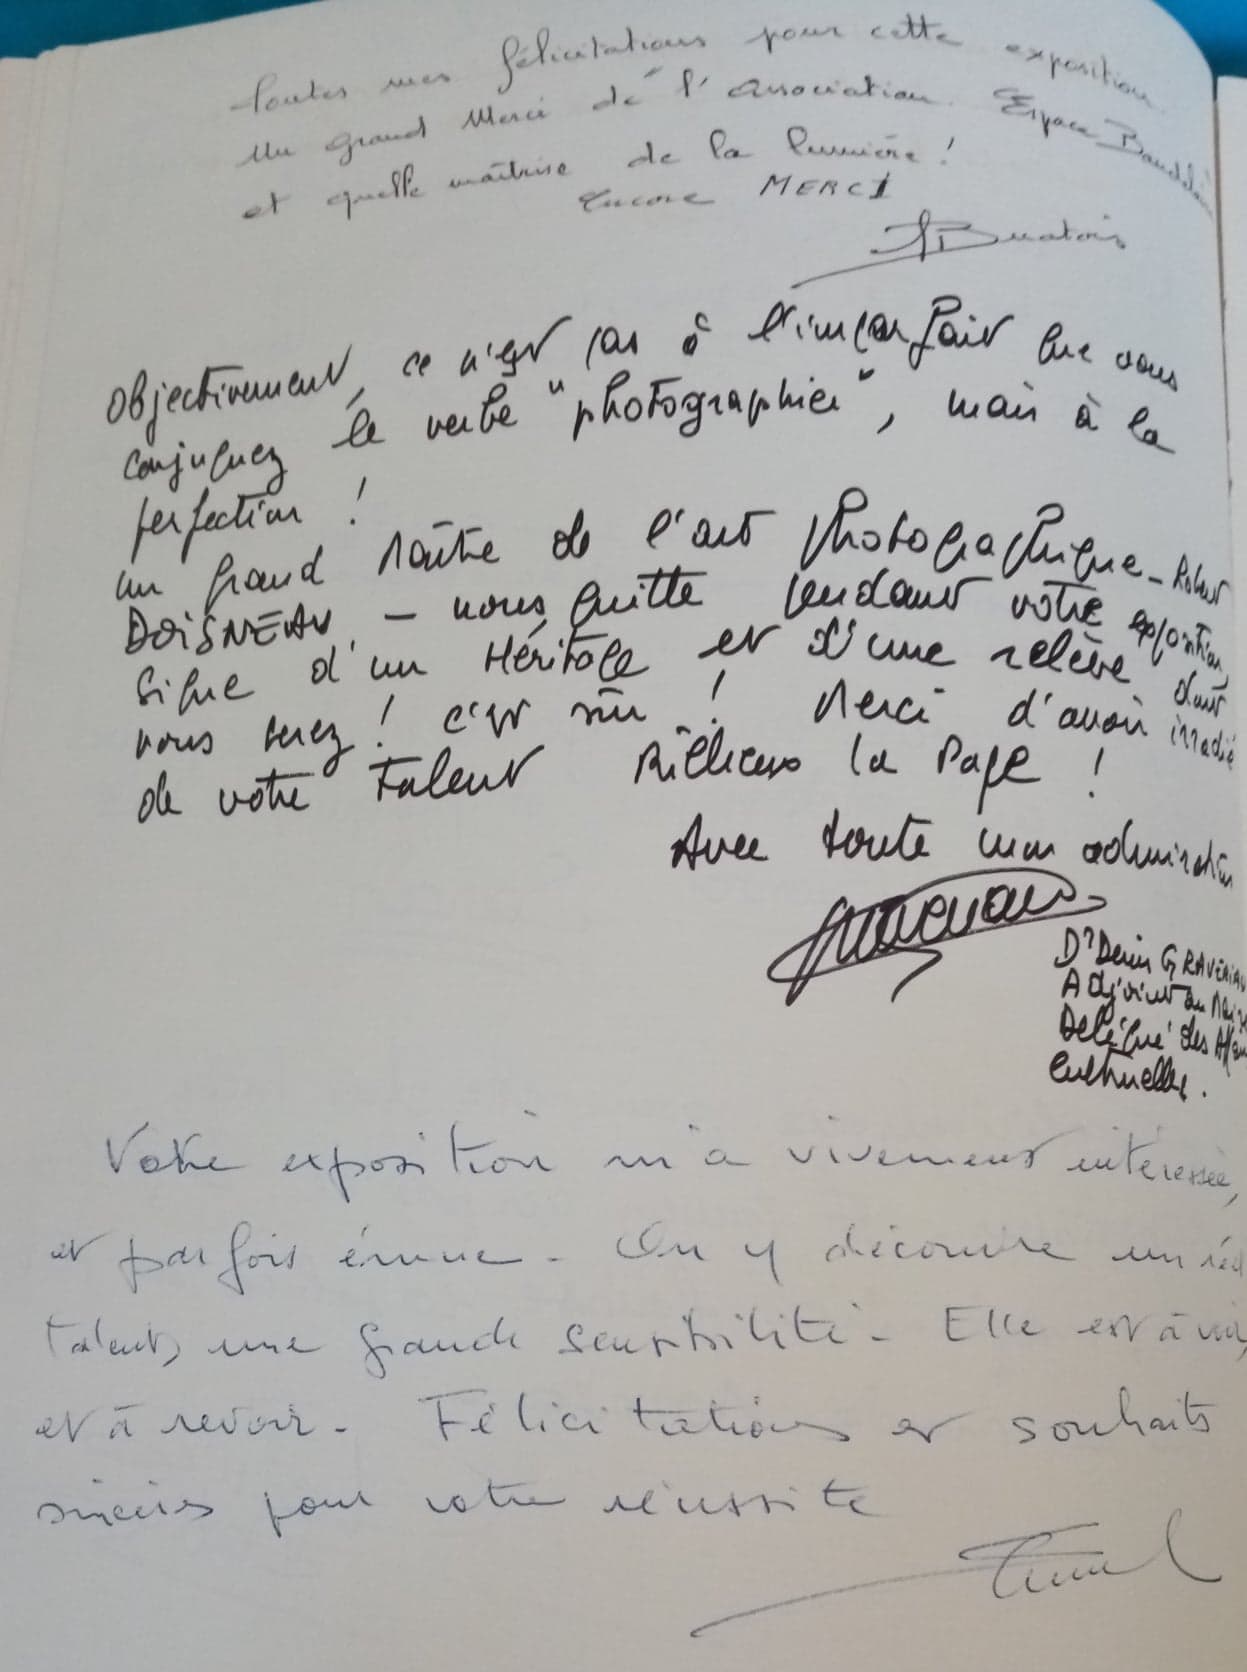 Toutes mes félicitations pour cette exposition.
Un grand Merci de l'association. Espace Baudelaire
et quelle maîtrise de la lumière !
Encore MERCI
Objectivement, ce n'est pas à l'imparfait que vous
conjuguez le verbe "photographier", mais à la
perfection !
un grand Maître de l'art photographique - Robert
DOISNEAU, - nous quitte pendant votre exposition,
signe d'un Héritage et d'une relève dont
vous serez ! c'est sûr ! Merci d'avoir irradié
de votre talent Rillieux la Pape !
Avec toute mon admiration
Dr Denis GRAVERIAU
Adjoint au Maire
Délégué des Aff
Culturelles.
Votre exposition m'a vivement intéressée,
et parfois émue - On y découvre un réel
talent, une grande sensibilité - Elle est à voir,
et à revoir - Félicitations et souhaits
sincères pour votre réussite